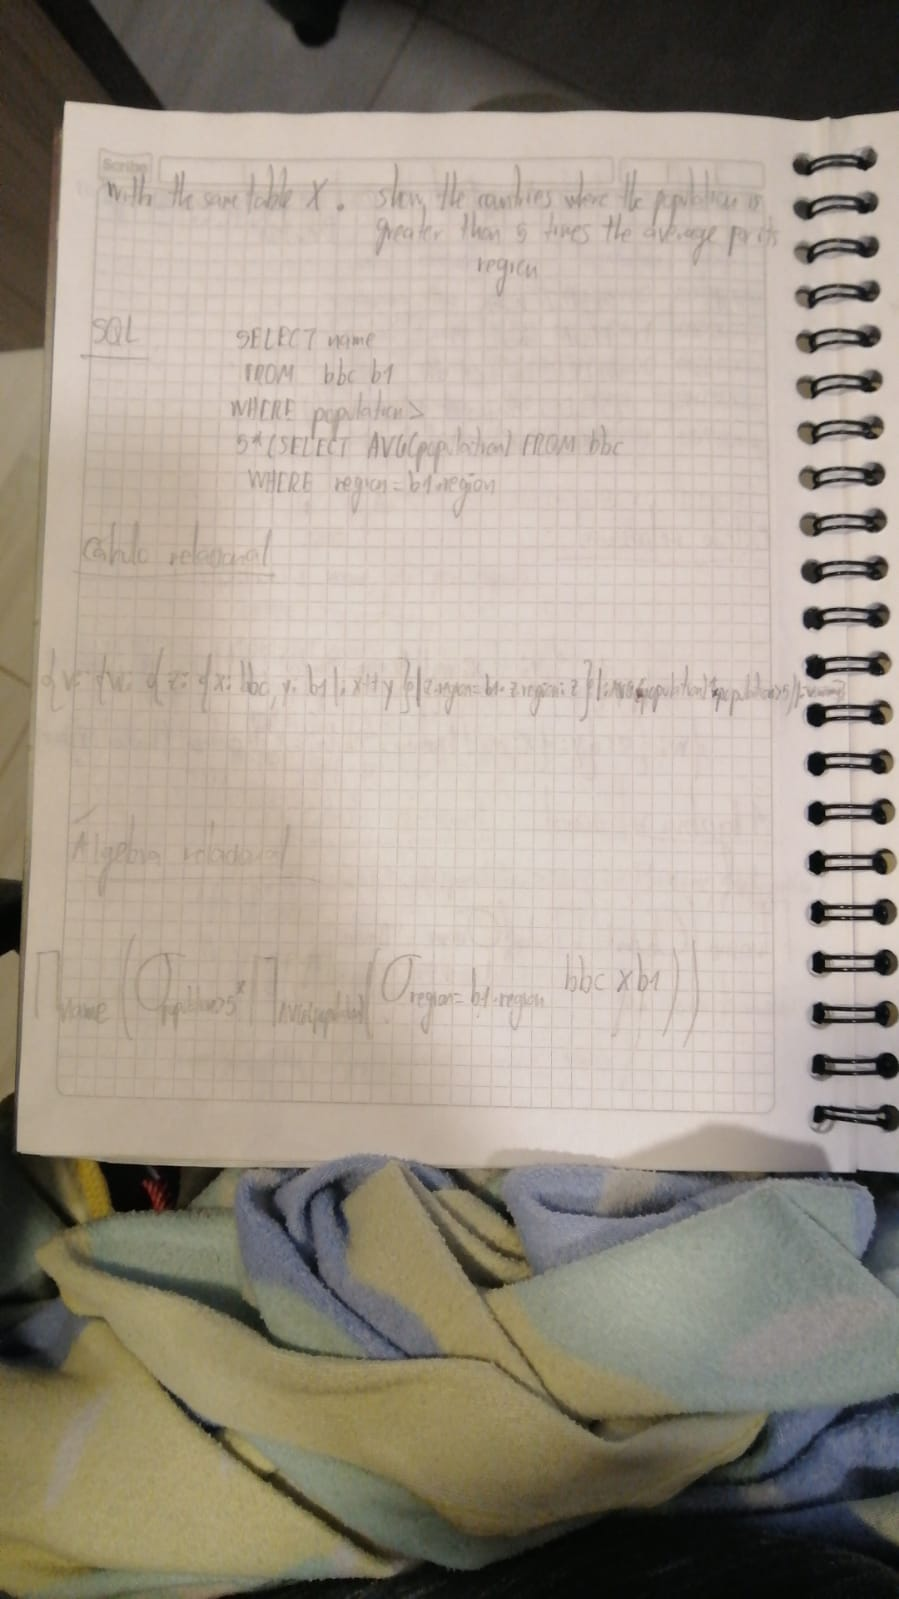 Scribe
With the same table X. show the countries where the population is
greater than 5 times the average for its
region
SQL
SELECT name
FROM bbc b1
WHERE population>
5*(SELECT AVG(population) FROM bbc
WHERE region=b1.region
Cálculo relacional
{v: {w: {z: {x: bbc, y: b1 |: x++y} | z.region=b1.z.region: z}
Álgebra relacional
∏name (σpopulation>5* ∏AVG(population) (σregion=b1.region bbc x b1))